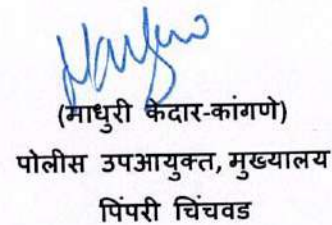 (माधुरी केदार-कांगणे)
पोलीस उपआयुक्त, मुख्यालय
पिंपरी चिंचवड